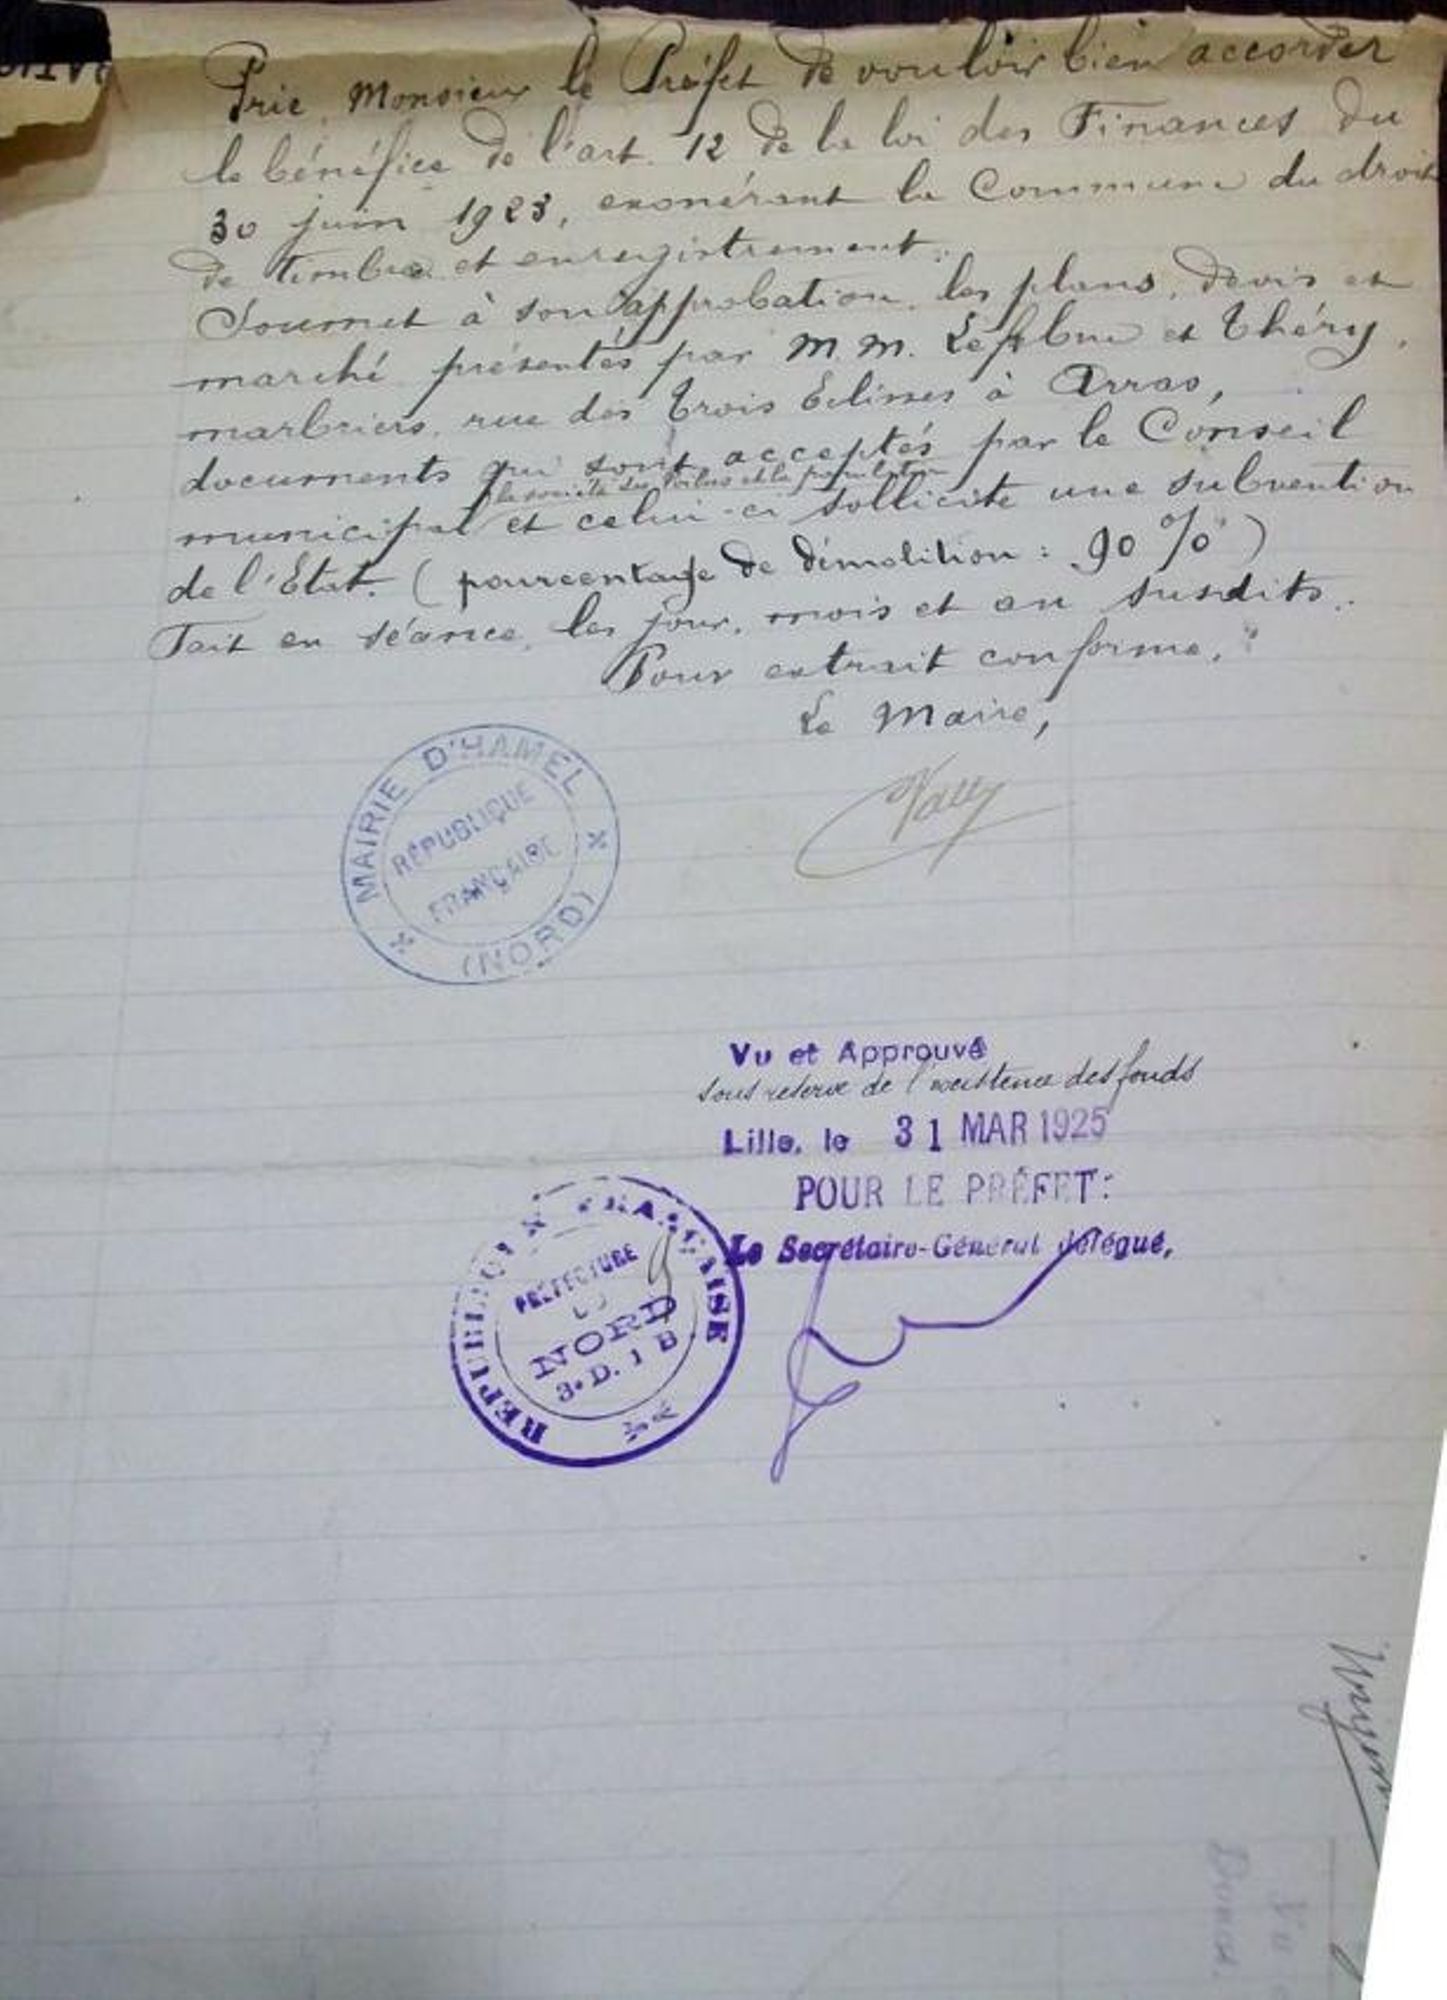 Prie Monsieur le Préfet de vouloir bien accorder
le bénéfice de l'art. 12 de la loi des Finances du
30 juin 1923, exonérant la Commune du droit
de timbre et enregistrement.
Soumet à son approbation, les plans, devis et
marché présentés par M.M. Lefebvre et Théry,
marbriers, rue des Trois à Arras,
documents qui sont acceptés par le Conseil
la société des Poilus et la population
municipal et celui-ci sollicite une subvention
de l'État. (pourcentage de démolition : 90 %)
Fait en séance, les jour, mois et an susdits.
Pour extrait conforme,
Le Maire,
MAIRIE D'HAMEL
RÉPUBLIQUE
FRANÇAISE
(NORD)
Vu et Approuvé
sous réserve de l'existence des fonds
Lille, le 31 MAR 1925
POUR LE PRÉFET:
Le Secrétaire-Général délégué,
RÉPUBLIQUE FRANÇAISE
PRÉFECTURE
DU
NORD
3e D. 1 B